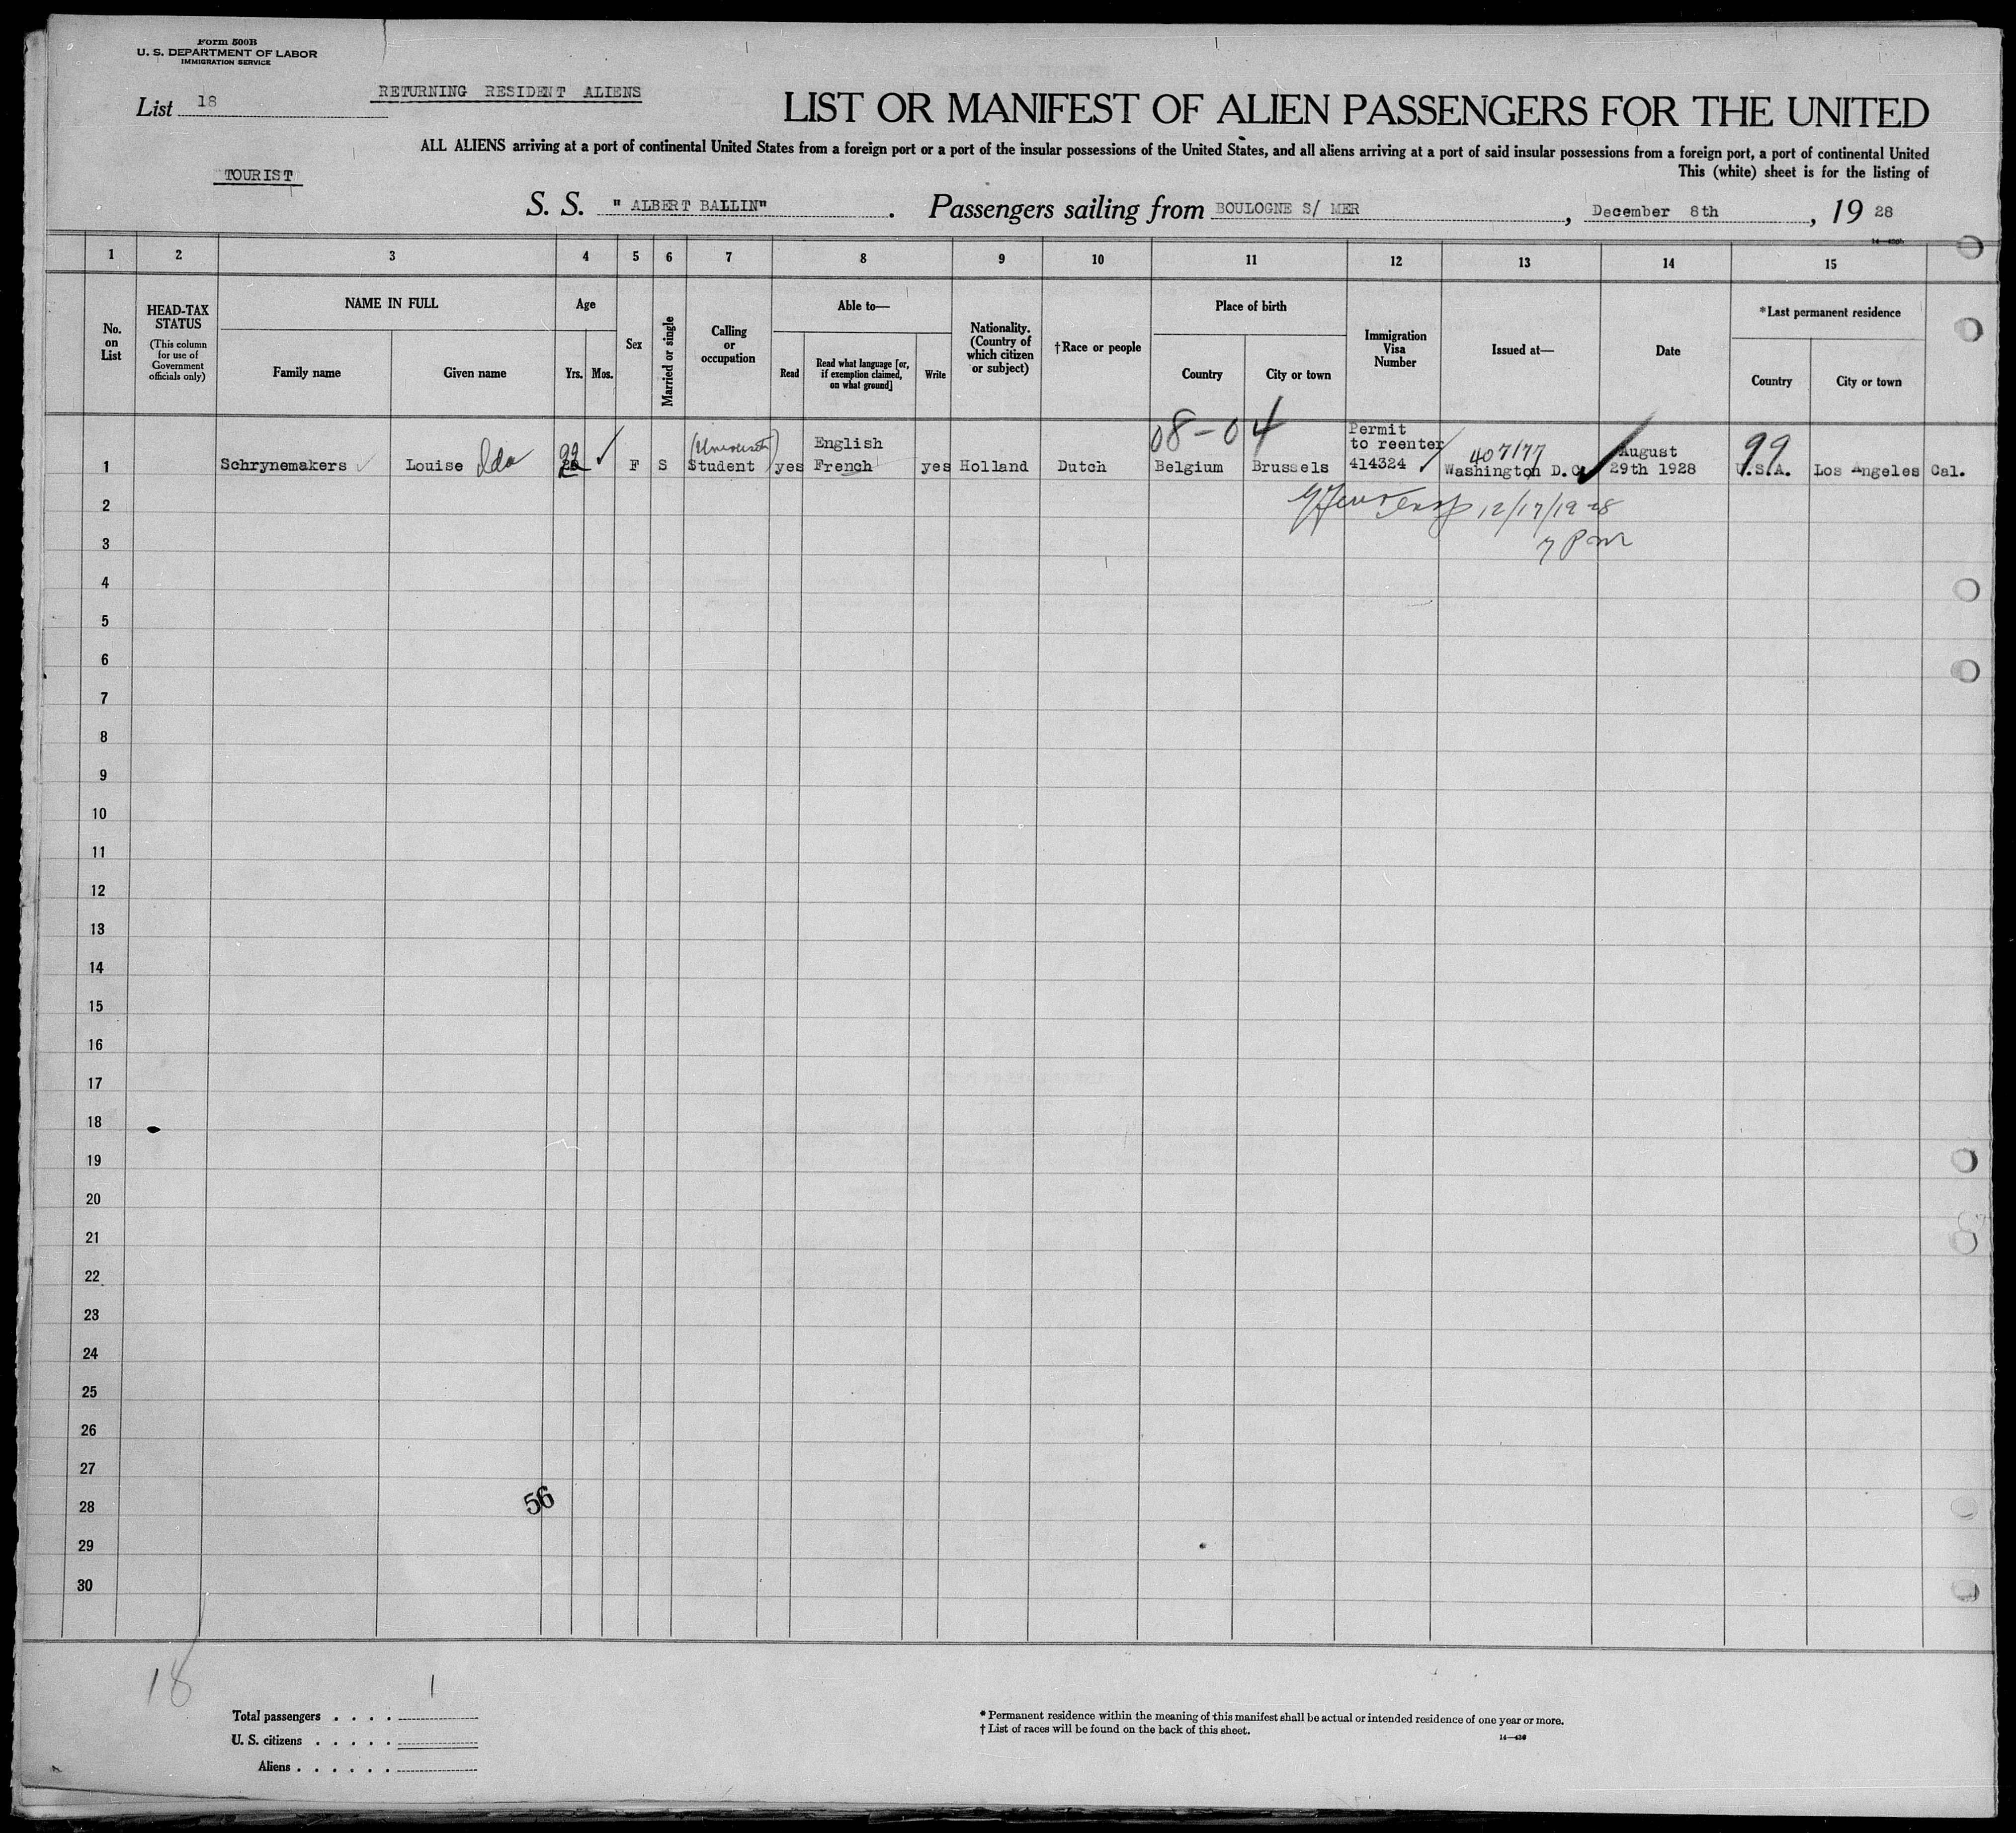 Form 500B
U. S. DEPARTMENT OF LABOR
IMMIGRATION SERVICE
List 18
RETURNING RESIDENT ALIENS
LIST OR MANIFEST OF ALIEN PASSENGERS FOR THE UNITED
ALL ALIENS arriving at a port of continental United States from a foreign port or a port of the insular possessions of the United States, and all aliens arriving at a port of said insular possessions from a foreign port, a port of continental United
This (white) sheet is for the listing of
TOURIST
S. S. " ALBERT BALLIN" . Passengers sailing from BOULOGNE S/ MER , December 8th , 19 28
1 2 3 4 5 6 7 8 9 10 11 12 13 14 15
No. on List
HEAD-TAX STATUS
(This column for use of Government officials only)
NAME IN FULL
Family name
Given name
Age
Yrs.
Mos.
Sex
Married or single
Calling or occupation
Able to—
Read
Read what language [or, if exemption claimed, on what ground]
Write
Nationality. (Country of which citizen or subject)
†Race or people
Place of birth
Country
City or town
Immigration Visa Number
Issued at—
Date
*Last permanent residence
Country
City or town
08-04
99
1 Schrynemakers Louise Ida 22 F S Student yes English French yes Holland Dutch Belgium Brussels Permit to reenter 414324 407177 Washington D.C. August 29th 1928 U.S.A. Los Angeles Cal.
2
12/17/1928
3
7 PM
4
5
6
7
8
9
10
11
12
13
14
15
16
17
18
19
20
21
22
23
24
25
26
27
28
56
29
30
18
1
Total passengers . . . .
U. S. citizens . . . . .
Aliens . . . . . .
* Permanent residence within the meaning of this manifest shall be actual or intended residence of one year or more.
† List of races will be found on the back of this sheet.